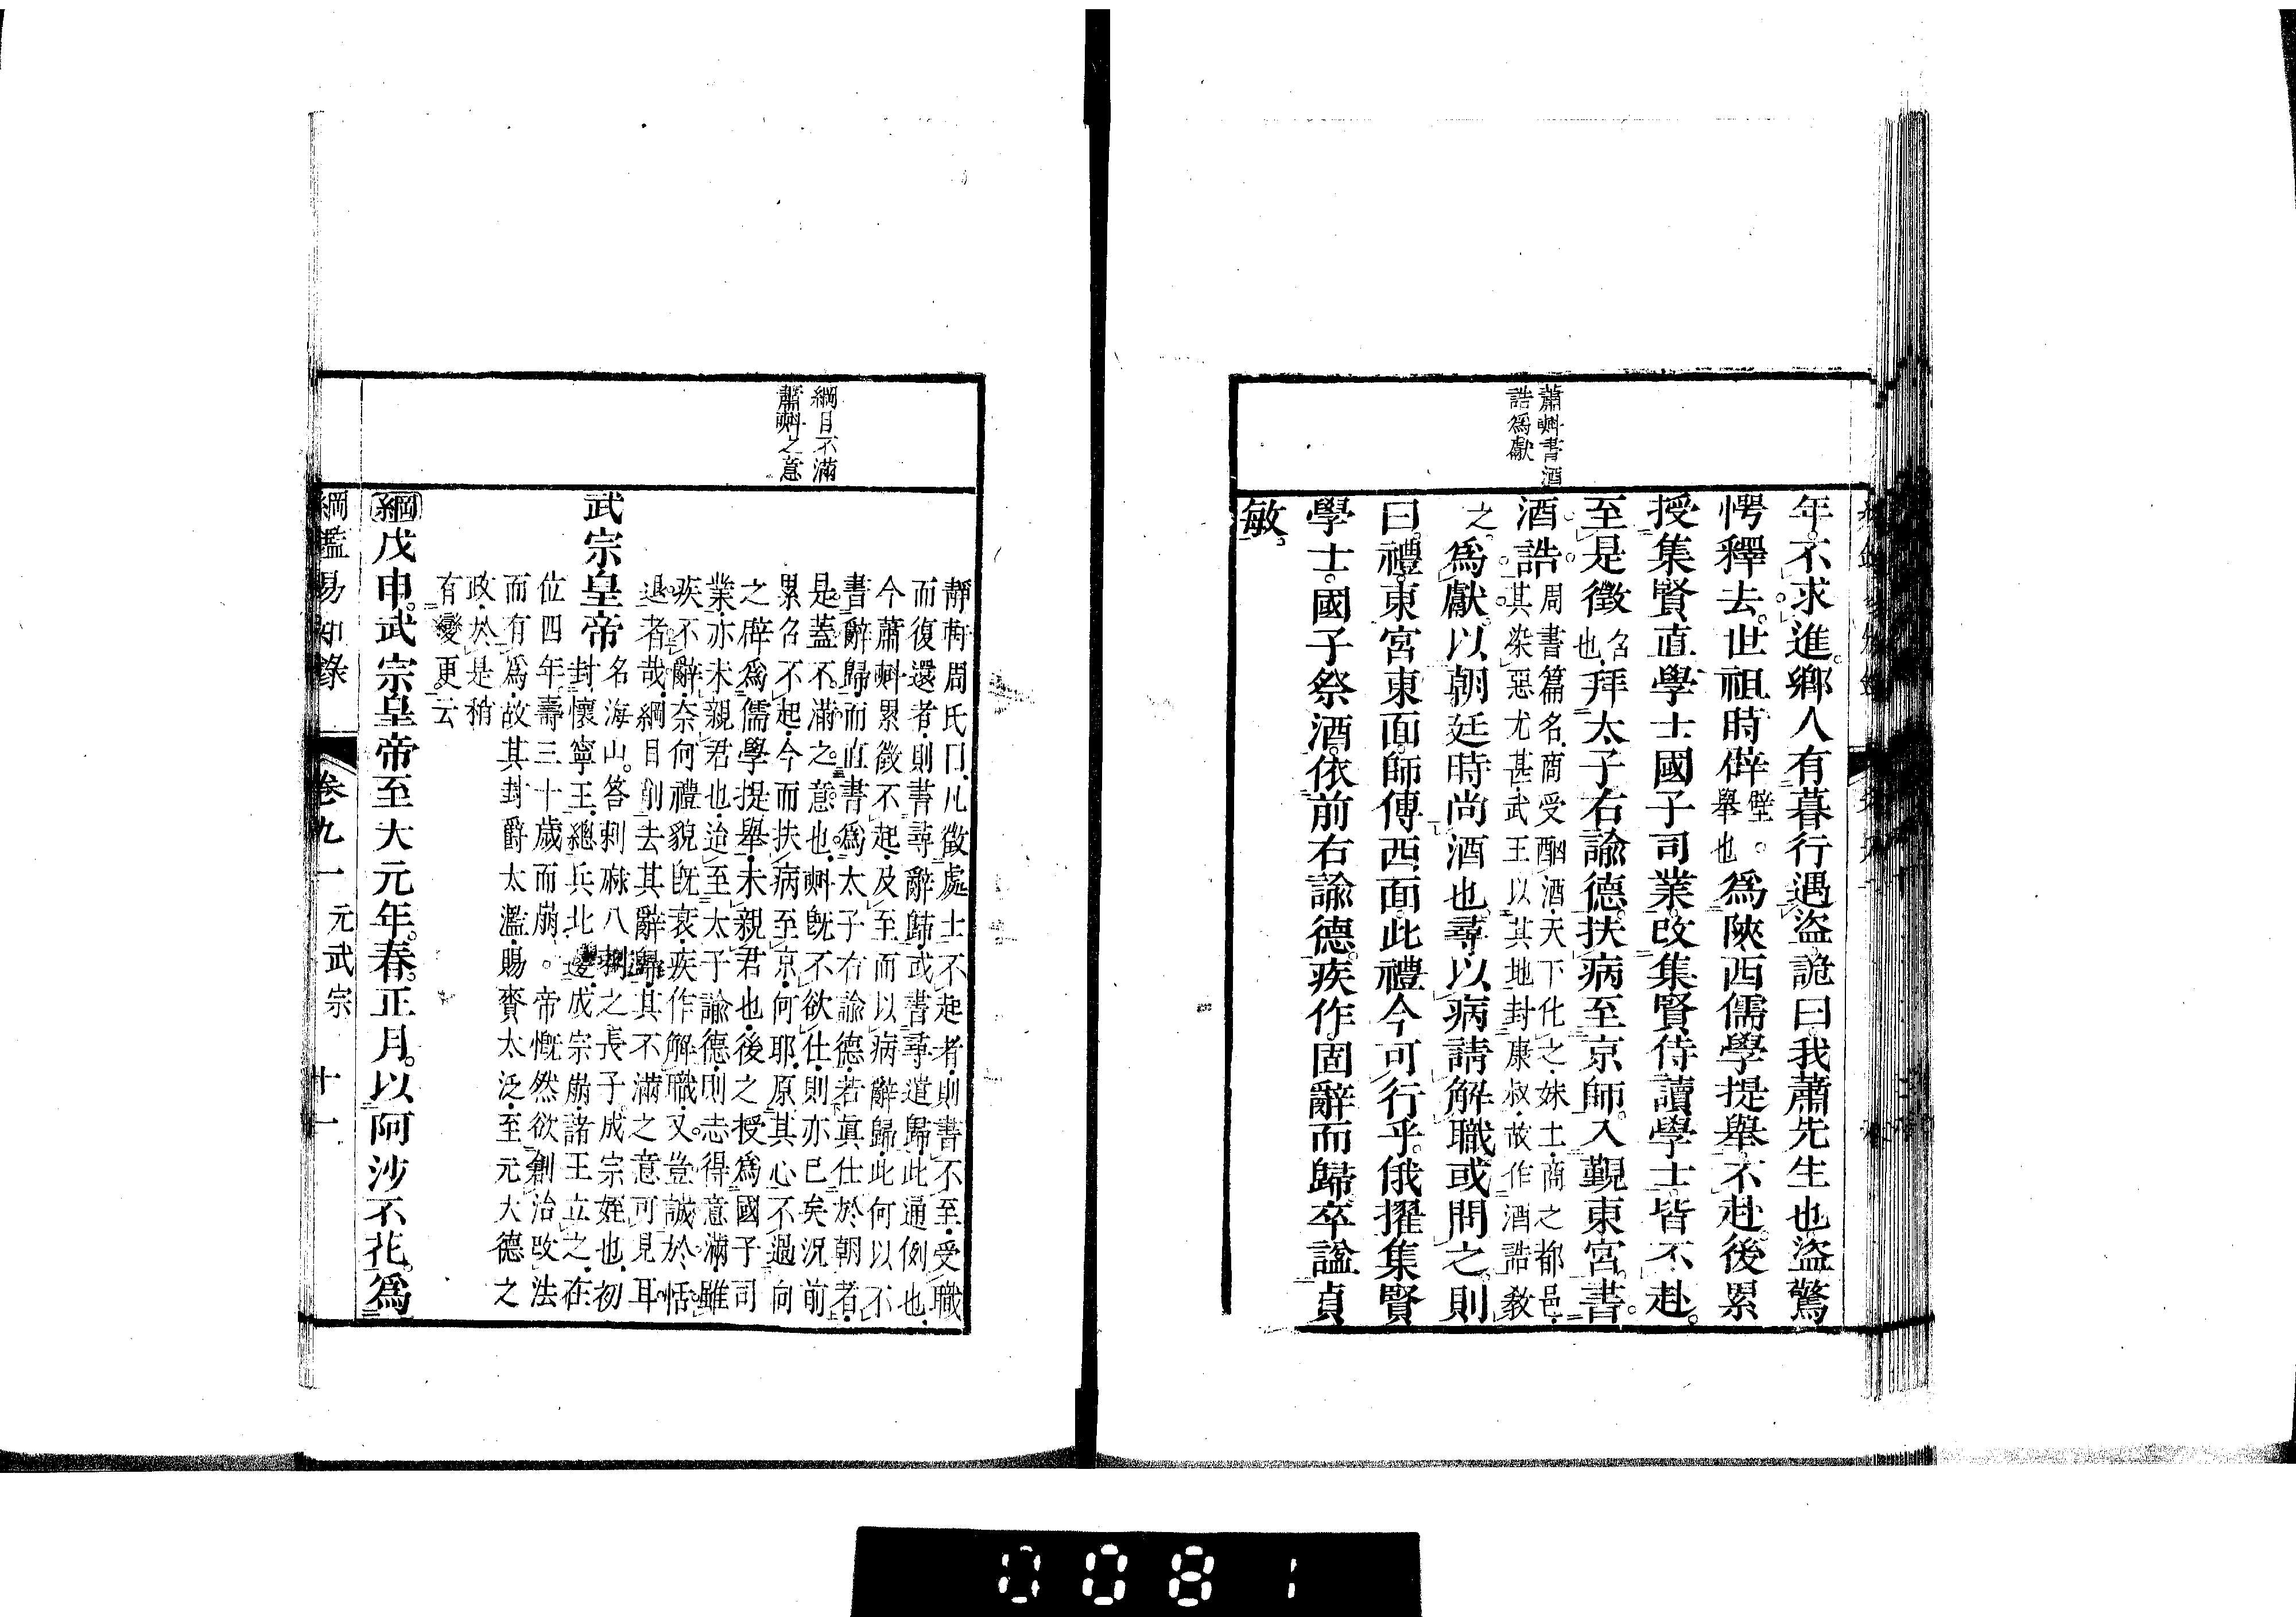 蕭𣂏書酒
誥爲獻
年。不求進。鄉人有暮行遇盜。詭曰。我蕭先生也。盜驚
愕釋去。世祖時辟璧。舉也。爲陝西儒學提舉。不赴。後累
授集賢直學士國子司業。改集賢侍讀學士。皆不赴。
至是徵召也。拜太子右諭德。扶病至京師。入覲東宮。書
酒誥。周書篇名。商受酗酒。天下化之。妹土。商之都邑。
其染惡尤甚。武王以其地封康叔。故作酒誥教
之。爲獻。以朝廷時尚酒也。尋以病請解職。或問之。則
曰。禮。東宮東面。師傅西面。此禮今可行乎。俄擢集賢
學士。國子祭酒。依前右諭德。疾作。固辭而歸。卒。諡貞
敏。
綱目不滿
蕭𣂏之意
靜軒周氏曰。凡徵處士不起者。則書不至。受職
而復還者。則書尋辭歸。或書尋遣歸。此通例也。
今蕭𣂏累徵不起。及至而以病辭歸。此何以不
書辭歸。而直書爲太子右諭德。若眞仕於朝者。
是蓋不滿之意也。𣂏既不欲仕。則亦已矣。況前
累召不起。今而扶病至京。何耶。原其心不過向
之辟爲儒學提舉。未親君也。後之授爲國子司
業。亦未親君也。迨至太子諭德。則志得意滿。雖
疾不辭。奈何禮貌既衰。疾作解職。又豈誠於恬
退者哉。綱目削去其辭歸。其不滿之意可見耳。
武宗皇帝
名海山。答剌麻八剌之長子。成宗姪也。初
封懷寧王。總兵北邊。成宗崩。諸王立之。在
位四年。壽三十歲而崩。。帝慨然欲創治改法
而有爲。故其封爵太濫。賜賚太泛。至元大德之
政。於是稍
有變更云
綱戊申。武宗皇帝至大元年。春。正月。以阿沙不花。爲
綱鑑易知錄 卷九一 元武宗 十一
0081